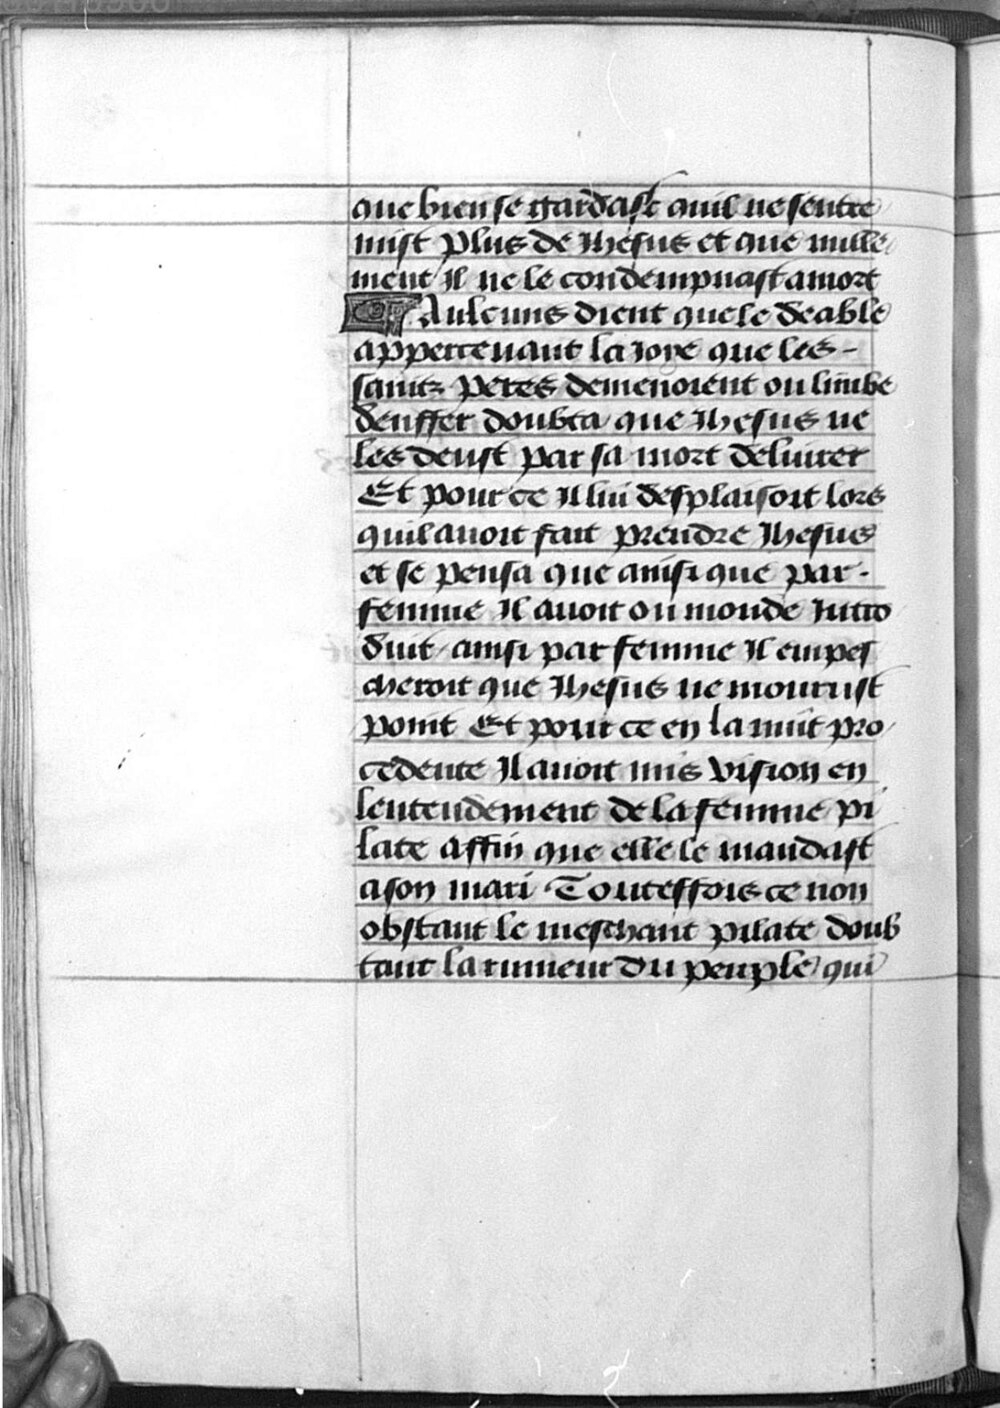 que bien se gardast quil ne sentre
mist plus de Ihesus et que nulle
ment Il ne le condempnast a mort
¶ Aulcuns dient que le deable
appercevant la Joye que les -
sainctz peres demenoient ou limbe
denffer doubta que Ihesus ne
les deust par sa mort deliurer
Et pour ce Il lui desplaisoit lors
quil auoit fait prendre Ihesus
et se pensa que ainsi que par -
femme Il auoit ou monde Intro
duit ainsi par femme Il empes
cheroit que Ihesus ne mourust
point Et pour ce en la nuit pro
cedente Il auoit mis vision en
lentendement de la femme pi
late affin que elle le mandast
a son mari Touteffois ce non
obstant le meschant pilate doub
tant la rumeur du peuple qui